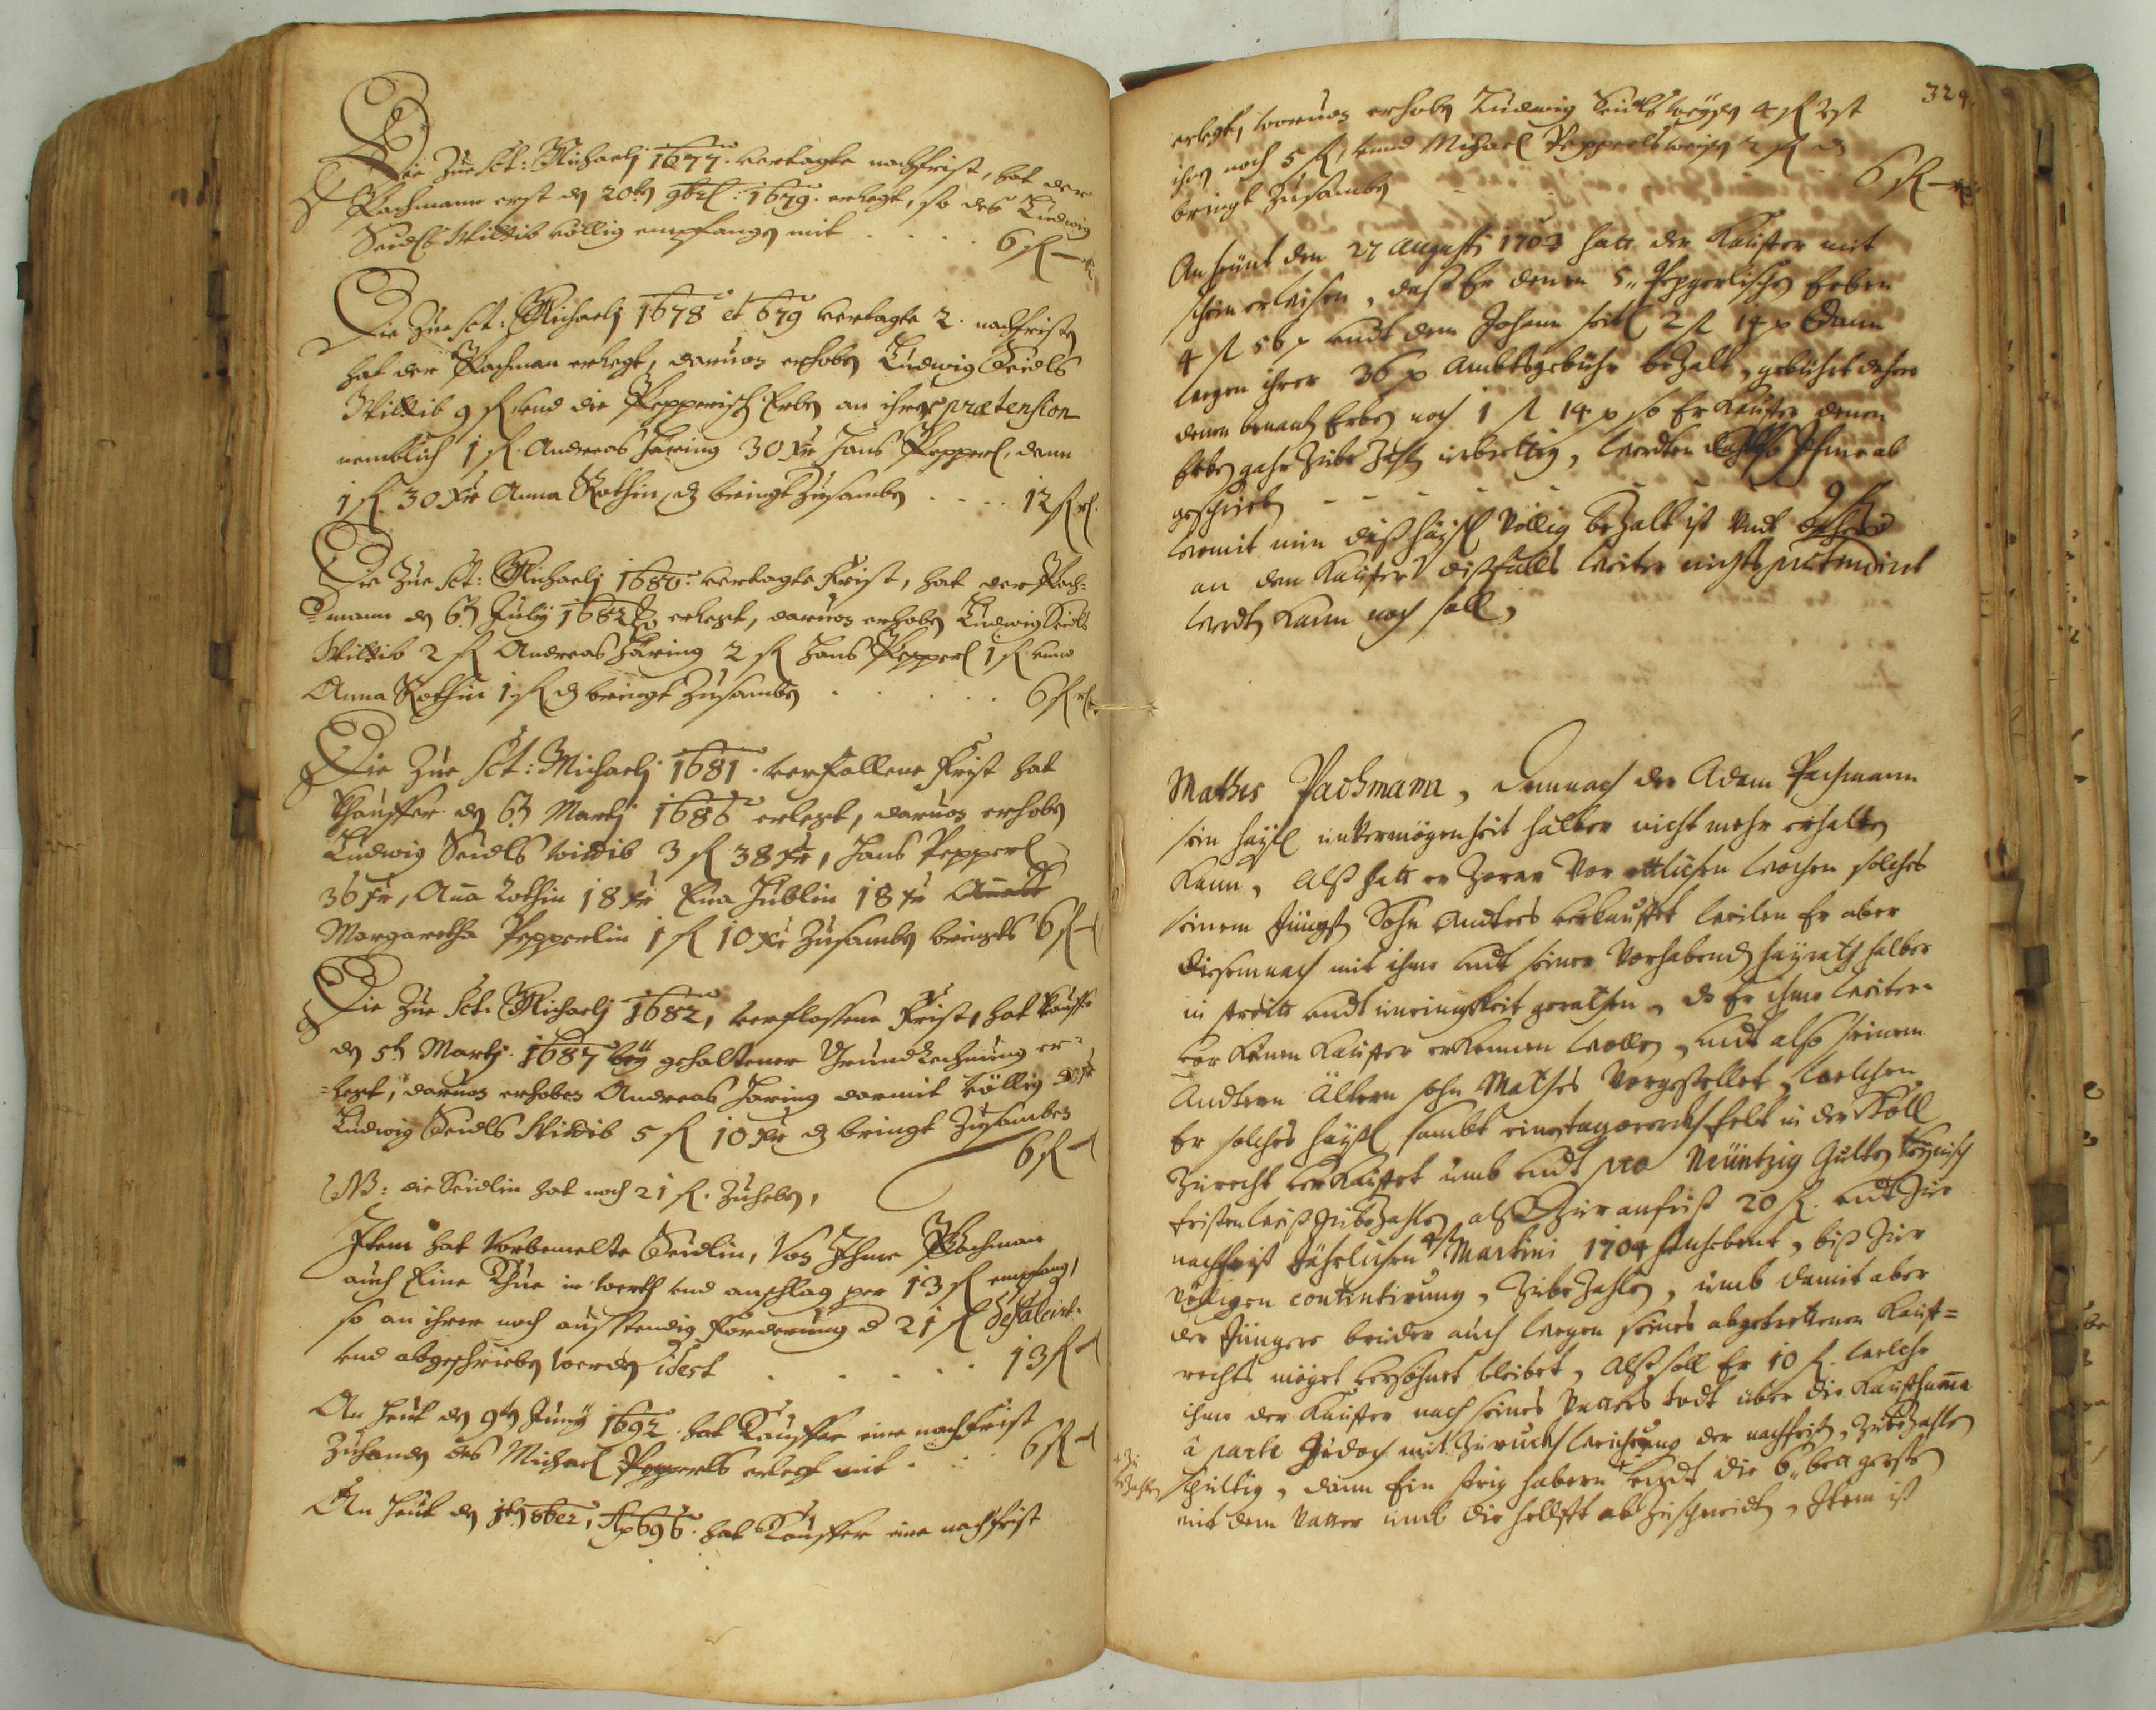 Die Zue Sct: Michaelj 1677. vertagte nachfrist, hat der
Pachmann erst den 20ten 9brl: 1679. erlegt, so des Ludwig
Seidls Wittib völlig empfangen mit . . . . 6 fl —
Die Zue Sct: Michaelj 1678 et 679 vertagte 2. nachfristen
hat der Pachman erlegt, daruon erhoben Ludwig Seidls
Wittib 9 fl vnd die Pepperisch Erben an ihrer prætension
nemblich 1 fl. Andreas Häring 30 xr Hans Pepperl, dann
1 fl 30 xr Anna Rothin, d bringt Zusamben . . . . 12 fl
Die Zue Sct: Michaelj 1680. vertagte Frist, hat der Pach-
mann den 6t July 1682 erlegt, daruon erhoben Ludwig Seidls
Wittib 2 fl Andreas Häring 2 fl Hans Pepperl 1 fl vnd
Anna Rothin 1 fl d bringt Zusamben . . . . . 6 fl
Die Zue Sct: Michaelj 1681. verfallene Frist hat
Khauffer den 6t Martj 1686 erlegt, daruon erhoben
Ludwig Seidls wittib 3 fl 38 xr, Hans Pepperl
36 xr, Ana Rothin 18 xr Eua Hüblin 18 xr
Margaretha Pepperlin 1 fl 10 xr Zusamben bringts 6 fl
Die Zue Sct: Michaelj 1682, verflossene Frist, hat Kauffer
den 5t Martj. 1687 bey gehaltener Grund Rechnung er-
=legt, daruon erhoben Andreas Häring darmit völlig 50 xr
Ludwig Seidls Wittib 5 fl 10 xr d bringt Zusamben
6 fl
NB: die Seidlin hat noch 21 fl. Zuheben,
Item hat Vorbemelte Seidlin, Von Ihme Pachman
auch Eine Khue in werth vnd anschlag per 13 fl empfang,
so an ihrer noch ausstendig Forderung d 21 fl defalcirt
vnd abgeschrieben werden idest . . . . 13 fl
An Heut den 9ten Juny 1692. hat Kauffer eine nachfrist
Zuhanden des Michael Pepperls erlegt mit . . 6 fl
An Heut den 8ber, Ao 696. hat Kauffer eine nachfrist
329.
erlegt, woruon erhoben Ludwig Seidls 4 fl rst
ihnen noch 5 fl, vnnd Michael Pepperls 2 fl d
bringt Zusamben 6 fl —
An heunt den 27 Augusti 1703 hatt der Kauffer mit
schein erwisen, daß Er denen 5 Pepperlischen Erben
4 fl 56 x vndt dem Johann Seitl 2 fl 14 x dann
wegen ihrer 36 x Ambtsgebühr bezalt, gebührt dahero
denen benanten Erben noch 1 fl 14 x so Er Kauffer denen
Erben gahr Zube Zahlen urbiettig, werdten Ihme ab
geschrieben - - - - - - - 9 fl
Womit nun diß Häysl Völlig bezalt ist vnd
an den Kauffer dißfalls weiter nichts prætendirt
werdten kann noch soll,
Mathes Pachmann, Demnach der Adam Pachmann
sein Häysl unVermögenheit halber nicht mehr erhalten
kann, Alß hatt er Zwar Vor ettlichen wochen solches
seinem Jüngsten Sohn Andrees verkaufft weilen Er aber
diesemnach mit ihme vndt seiner Vorhabenden Häyrath halber
in streitt vndt uneinigkeit gerathen, d Er ihme weiter
vor Keinen Kauffer erkennen wollen, vndt also seinem
Andtern Ältern Sohn Mathes Vorgestellet, welchen
Er solches Häysl sambt eines tagwerckh felt in der Köll
Zurecht verkaufft umb vndt pro Neüntzig Gulten Reynisch
fristenweiß Zubezahlen alß Zur anfrist 20 fl. vndt Zur
nachfrist Jährlichen 4 fl Martini 1704 anhebent, biß Zur
Völligen contentirung, ZubeZahlen, umb damit aber
der Jüngere bruder auch wegen seines abgetrettenen Kauf=
rechts möget versöhnet bleibet, Alß soll Er 10 fl. welche
ihme der Kauffer nach seines Vatters todt über die Kauffsuma
à parte Jedoch mit Zuruckh weichung der nachfristen, ZubeZahlen
schultig, dann Ein strig habern vndt die 6 bett gersten
mit dem Vatter umb die helffte abZuschneiden, Item ist